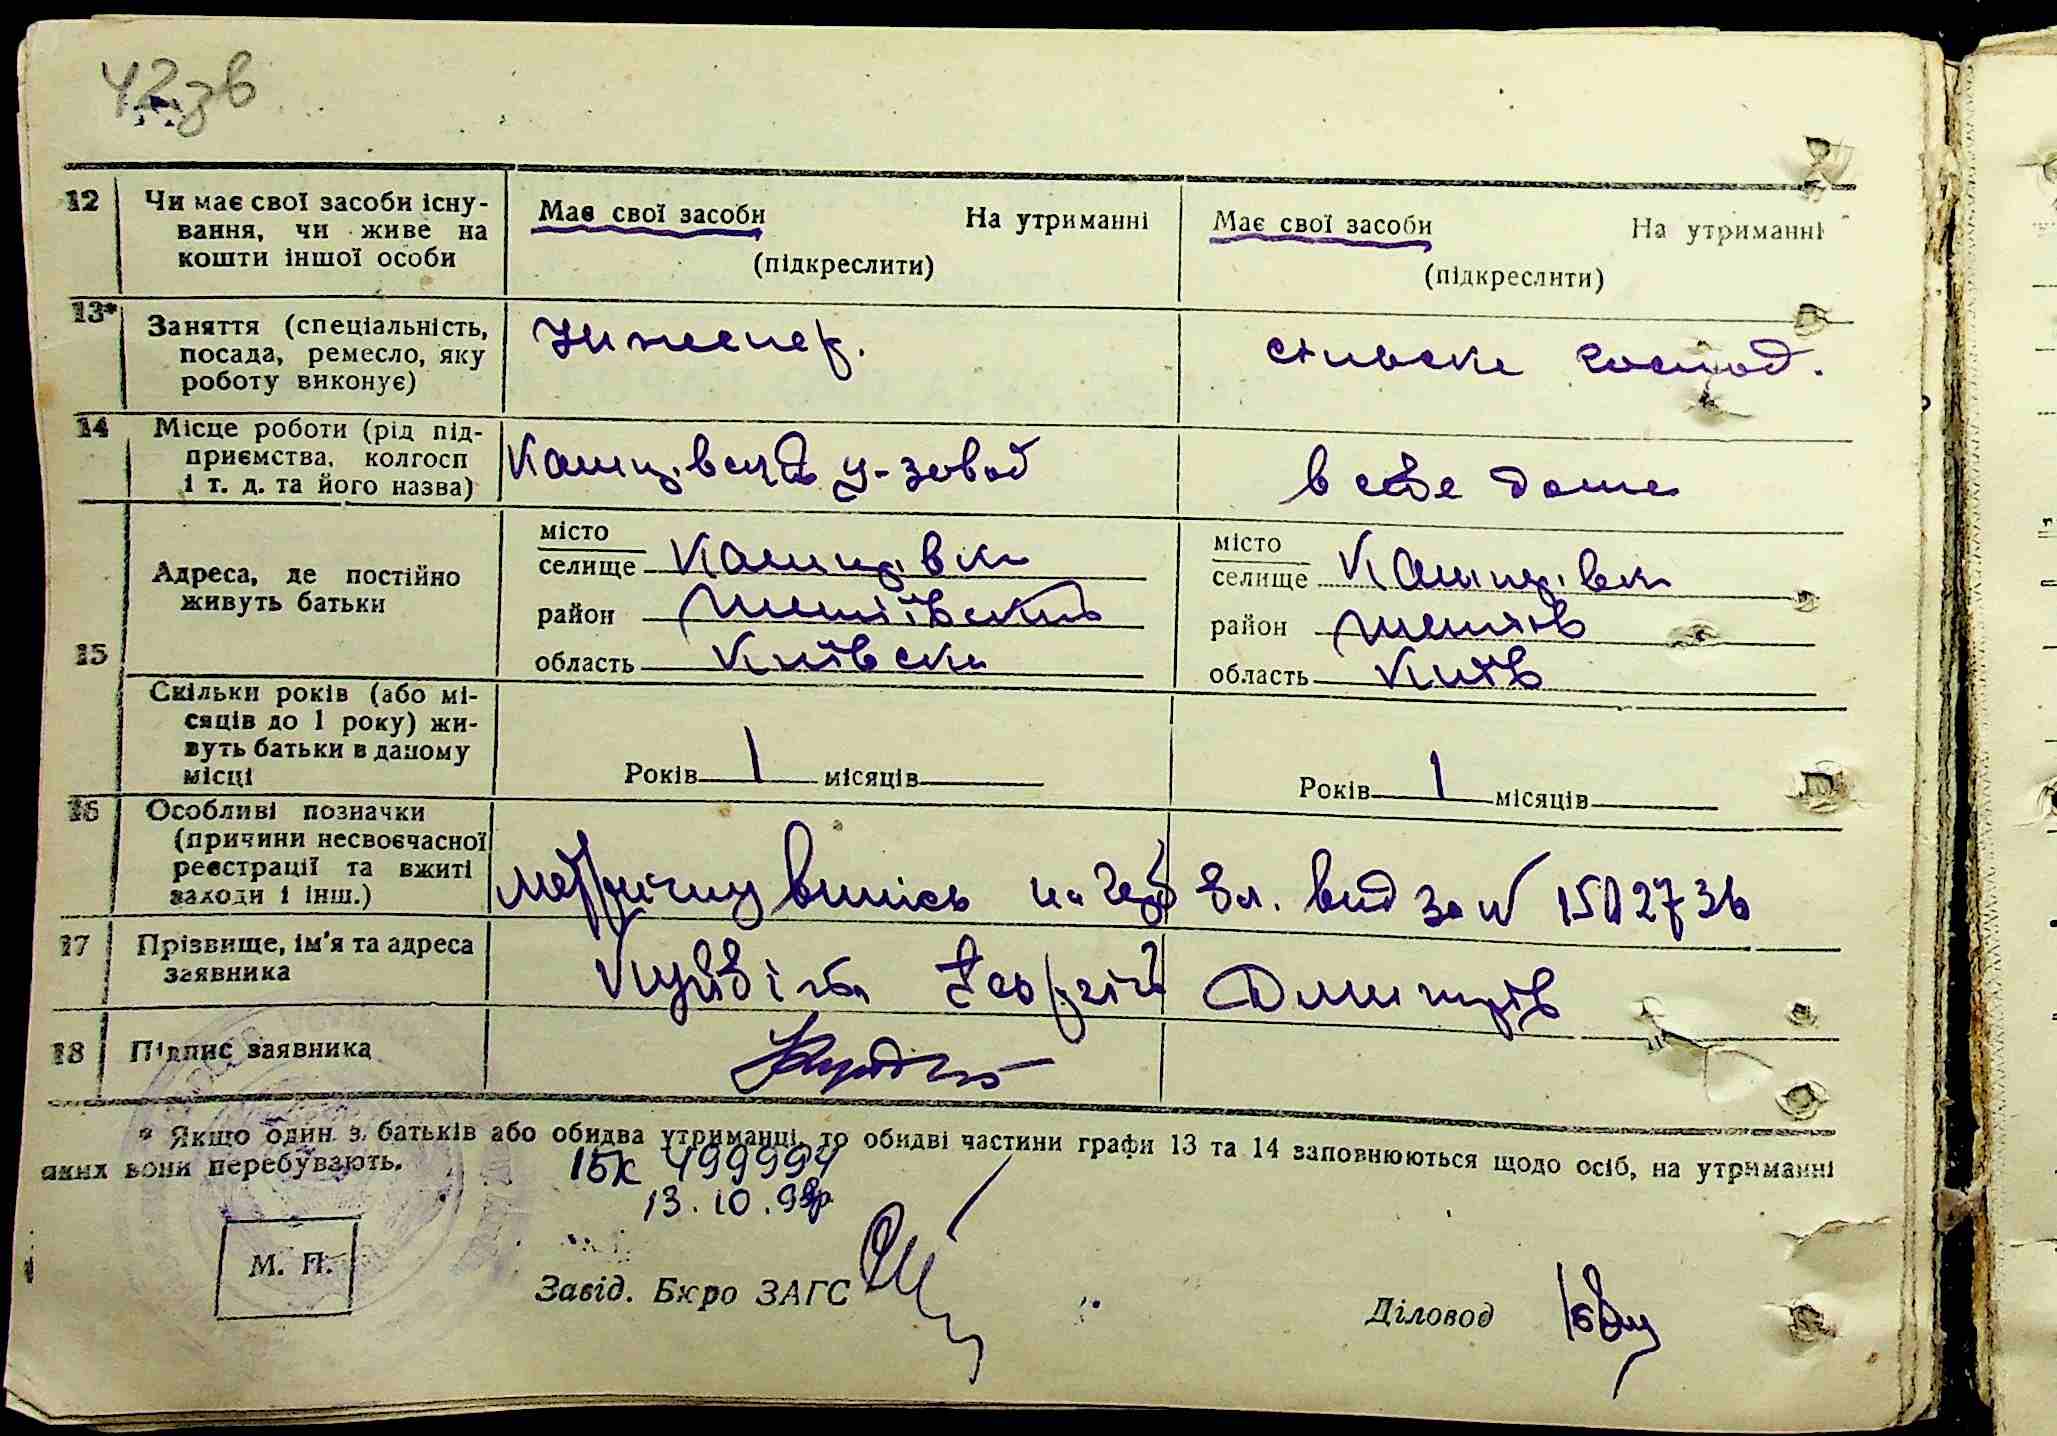 42зв
12 Чи має свої засоби існу-
вання, чи живе на
кошти іншої особи
Має свої засоби На утриманні
(підкреслити)
Має свої засоби На утриманні
(підкреслити)
13* Заняття (спеціальність,
посада, ремесло, яку
роботу виконує)
Инженер.
сільське господ.
14 Місце роботи (рід під-
приємства, колгосп
і т. д. та його назва)
в себе дома
15 Адреса, де постійно
живуть батьки
місто
селище Кашперівка
район
область Київська
місто
селище Кашперівка
район
область Київ
Скільки років (або мі-
сяців до 1 року) жи-
вуть батьки в даному
місці
Років 1 місяців
Років 1 місяців
16 Особливі позначки
(причини несвоєчасної
реєстрації та вжиті
заходи і інш.)
Метричну випись на 3л. вид за №
17 Прізвище, ім'я та адреса
заявника
Георгій Дмитрів
18 Підпис заявника
* Якщо один з батьків або обидва утриманці, то обидві частини графи 13 та 14 заповнюються щодо осіб, на утриманні
яких вони перебувають.
499994
13.10.
М. П.
Завід. Бюро ЗАГС
Діловод